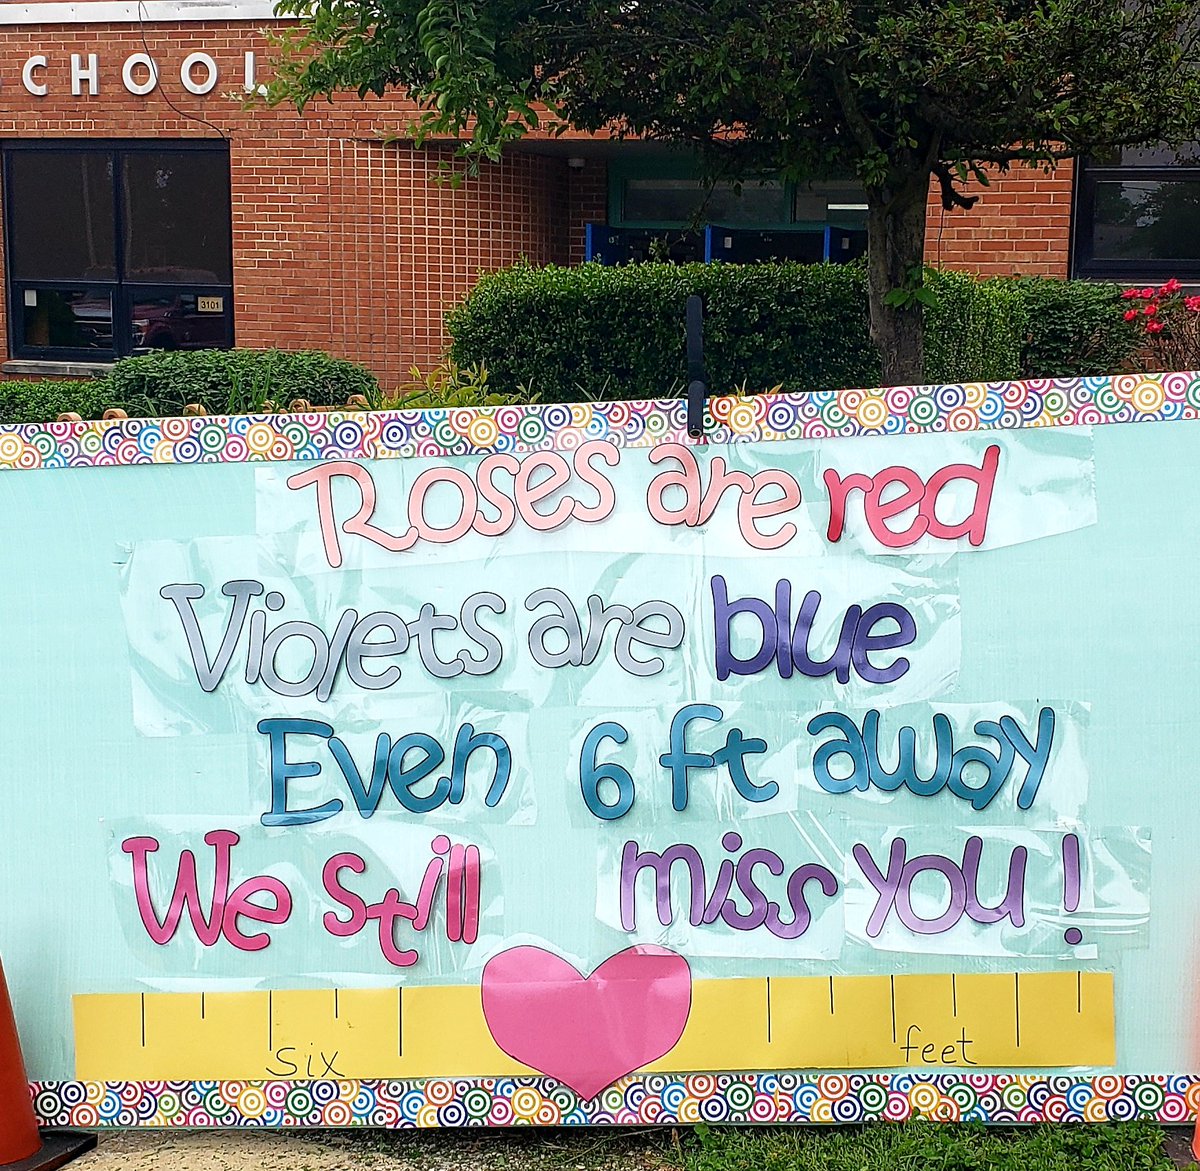 CHOOL
3101
Roses are red
Violets are blue
Even 6 ft away
We still miss you!
six feet